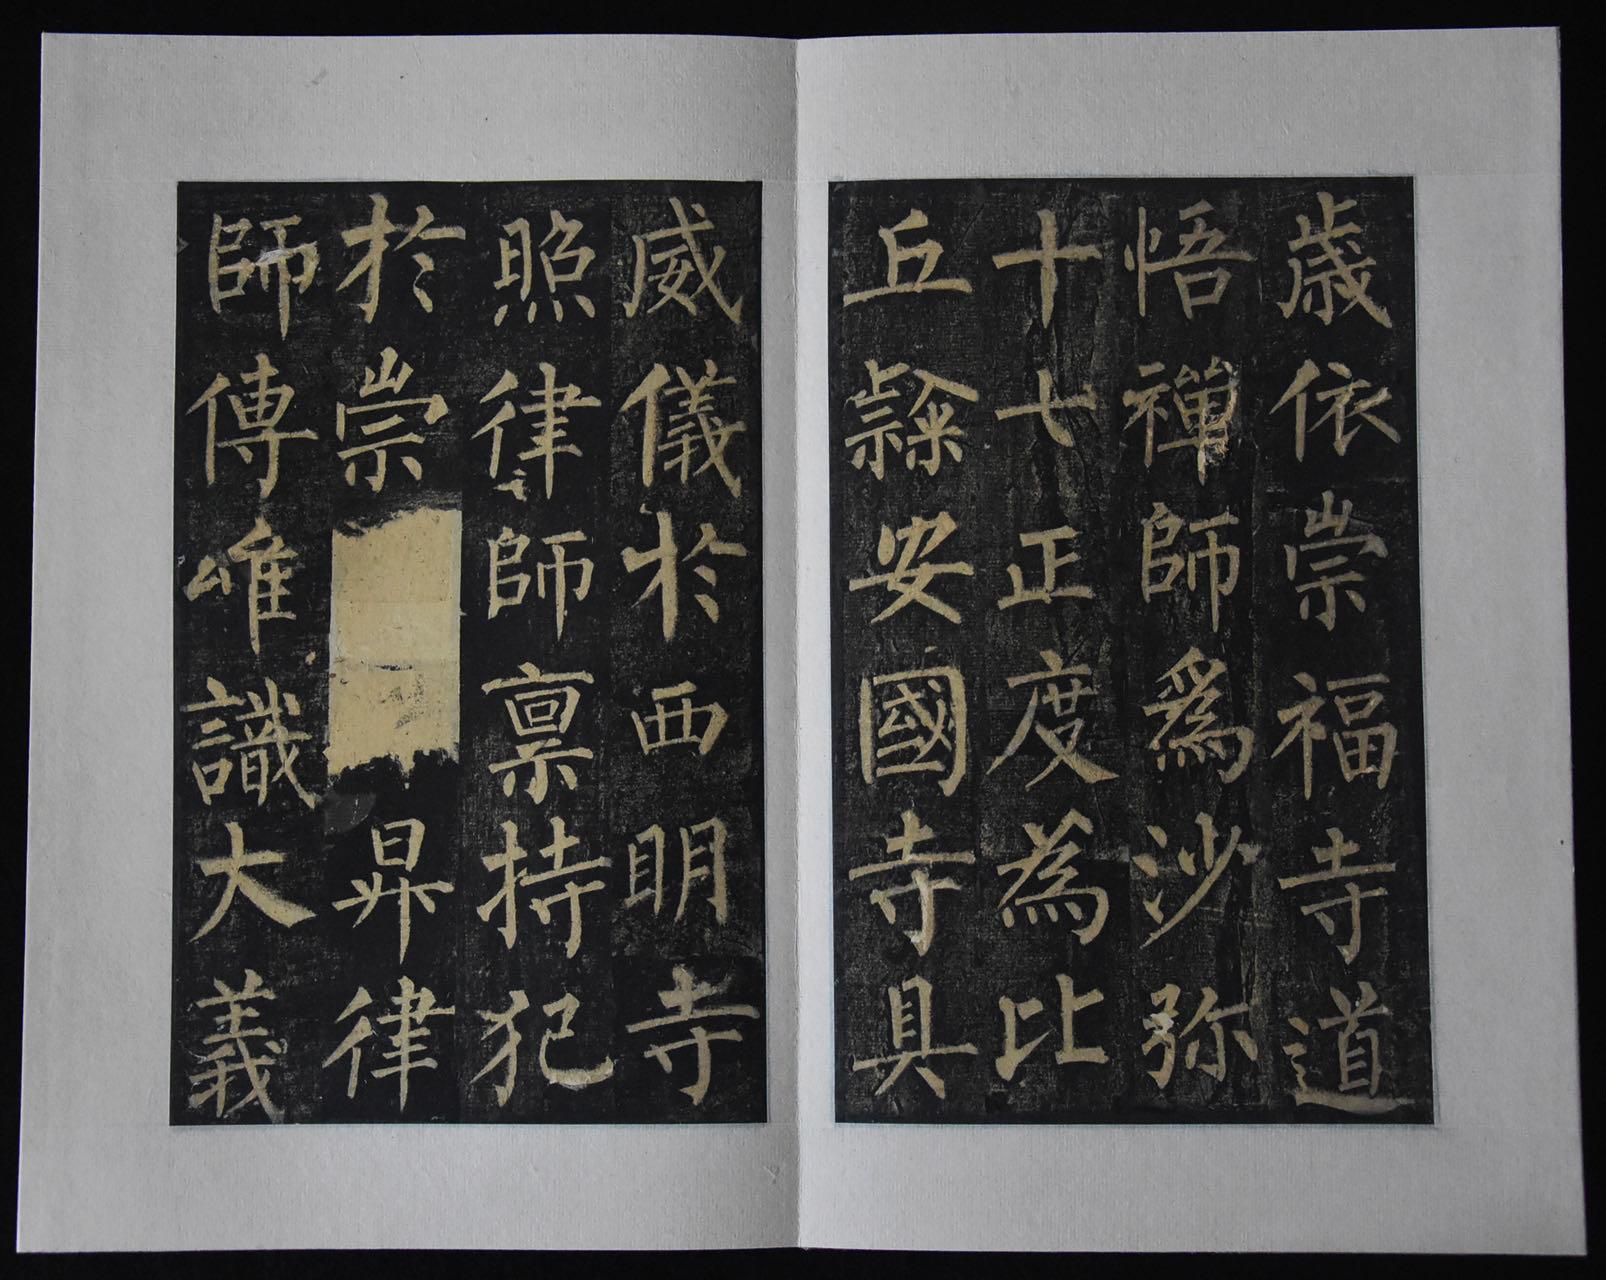 歲依崇福寺道
悟禪師爲沙弥
十七正度為比
丘隸安國寺具
威儀於西明寺
照律師禀持犯
於崇昇律
師傳唯識大義